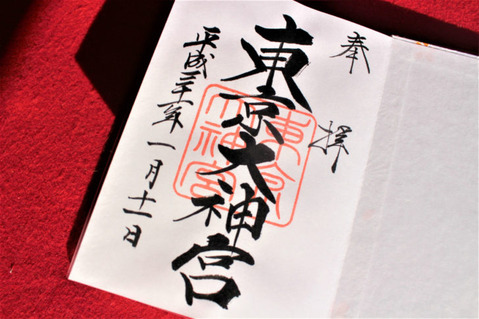 奉拝
東京大神宮
東京大神宮
平成三十一年一月十一日